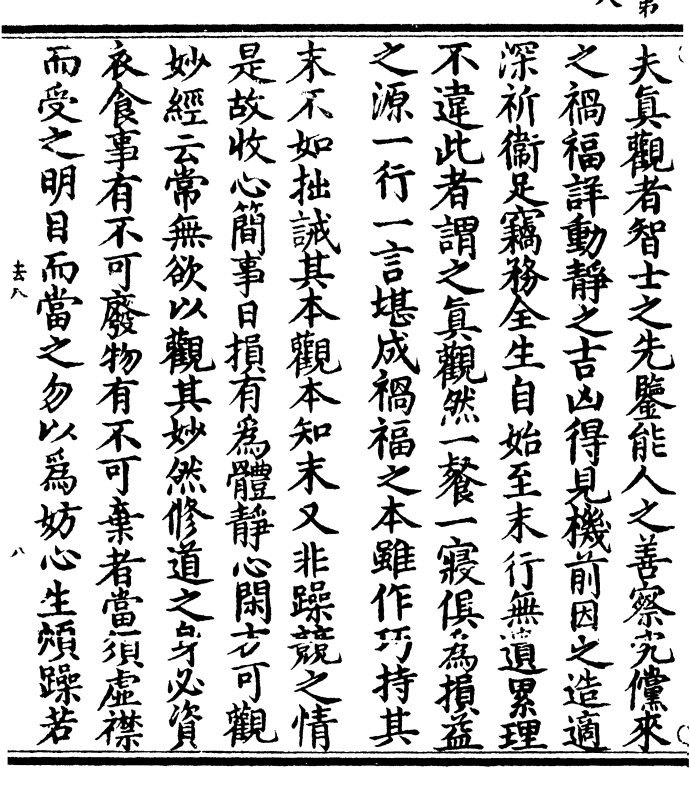 夫真觀者智士之先鑒能人之善察究儻來
之禍福詳動靜之吉凶得見機前因之造適
深祈衞足竊務全生自始至末行無遺累理
不違此者謂之真觀然一餐一寢俱為損益
之源一行一言堪成禍福之本雖作巧持其
末不如拙誡其本觀本知末又非躁競之情
是故收心簡事日損有為體靜心閑方可觀
妙經云常無欲以觀其妙然修道之身必資
衣食事有不可廢物有不可棄者當須虛襟
而受之明目而當之勿以為妨心生煩躁若
去八
八